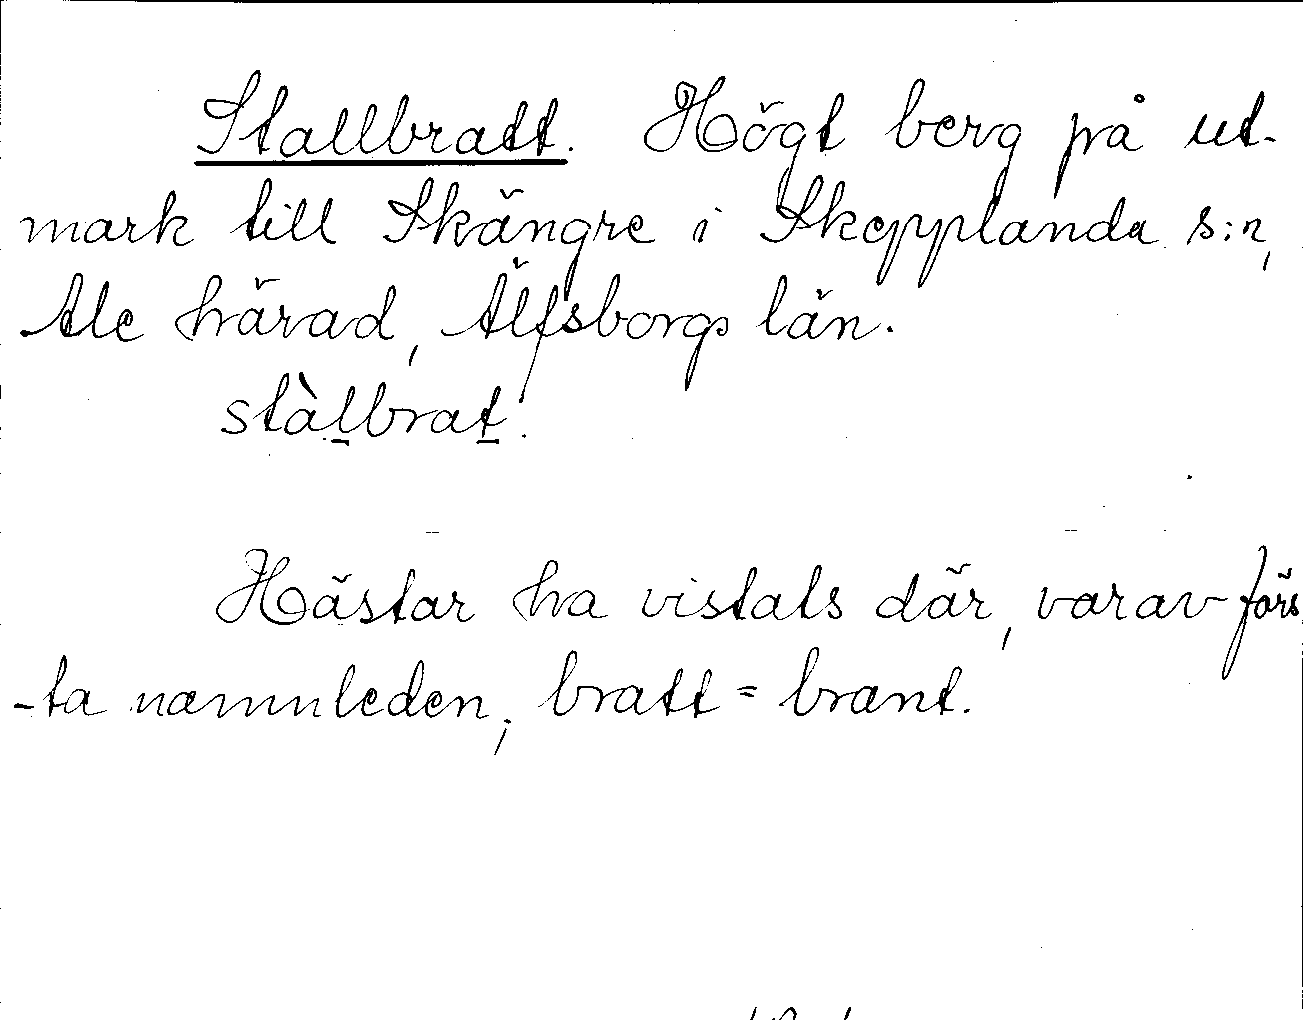 Stallbratt. Högt berg på ut-
mark till Skängre i Skepplanda s:n,
Ale härad, Älfsborgs län.
stàl̲brat̲.
Hästar ha vistats där, varav förs
-ta namnleden; bratt = brant.